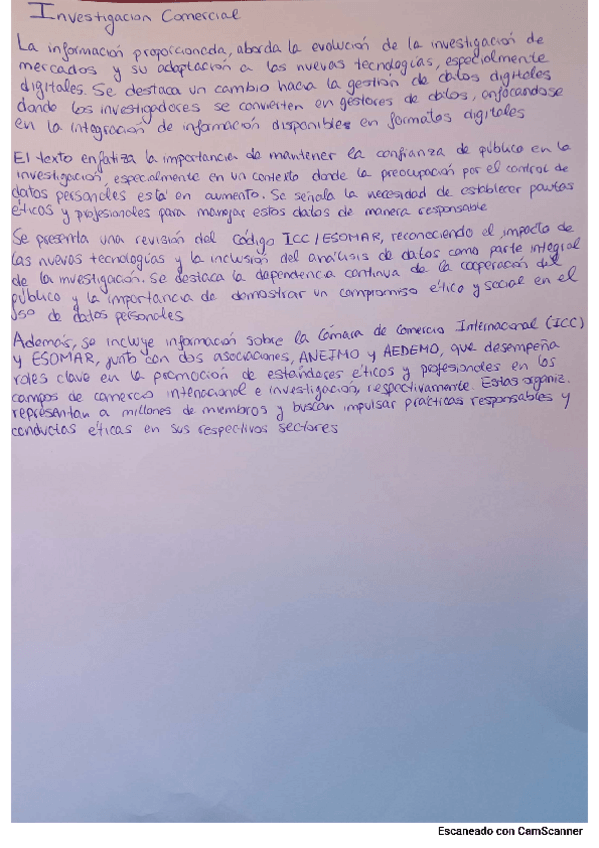 Investigacion Comercial
La información proporcionada, aborda la evolución de la investigación de
mercados y su adaptación a las nuevas tecnologías, especialmente
digitales. Se destaca un cambio hacia la gestión de datos digitales
donde los investigadores se convierten en gestores de datos, enfocandose
en la integración de información disponibles en formatos digitales
El texto enfatiza la importancia de mantener la confianza de público en la
investigación, especialmente en un contexto donde la preocupación por el control de
datos personales está en aumento. Se señala la necesidad de establecer pautas
éticas y profesionales para manejar estos datos de manera responsable
Se presenta una revisión del Código ICC/ESOMAR, reconociendo el impacto de
las nuevas tecnologías y la inclusión del análisis de datos como parte integral
de la investigación. Se destaca la dependencia continua de la cooperación del
público y la importancia de demostrar un compromiso ético y social en el
uso de datos personales
Además, se incluye información sobre la Cámara de Comercio Internacional (ICC)
y ESOMAR, junto con dos asociaciones, ANEIMO y AEDEMO, que desempeña
roles clave en la promoción de estándares éticos y profesionales en los
campos de comercio intenacional e investigación, respectivamente. Estas organiz.
representan a millones de miembros y buscan impulsar prácticas responsables y
conductas éticas en sus respectivos sectores
Escaneado con CamScanner